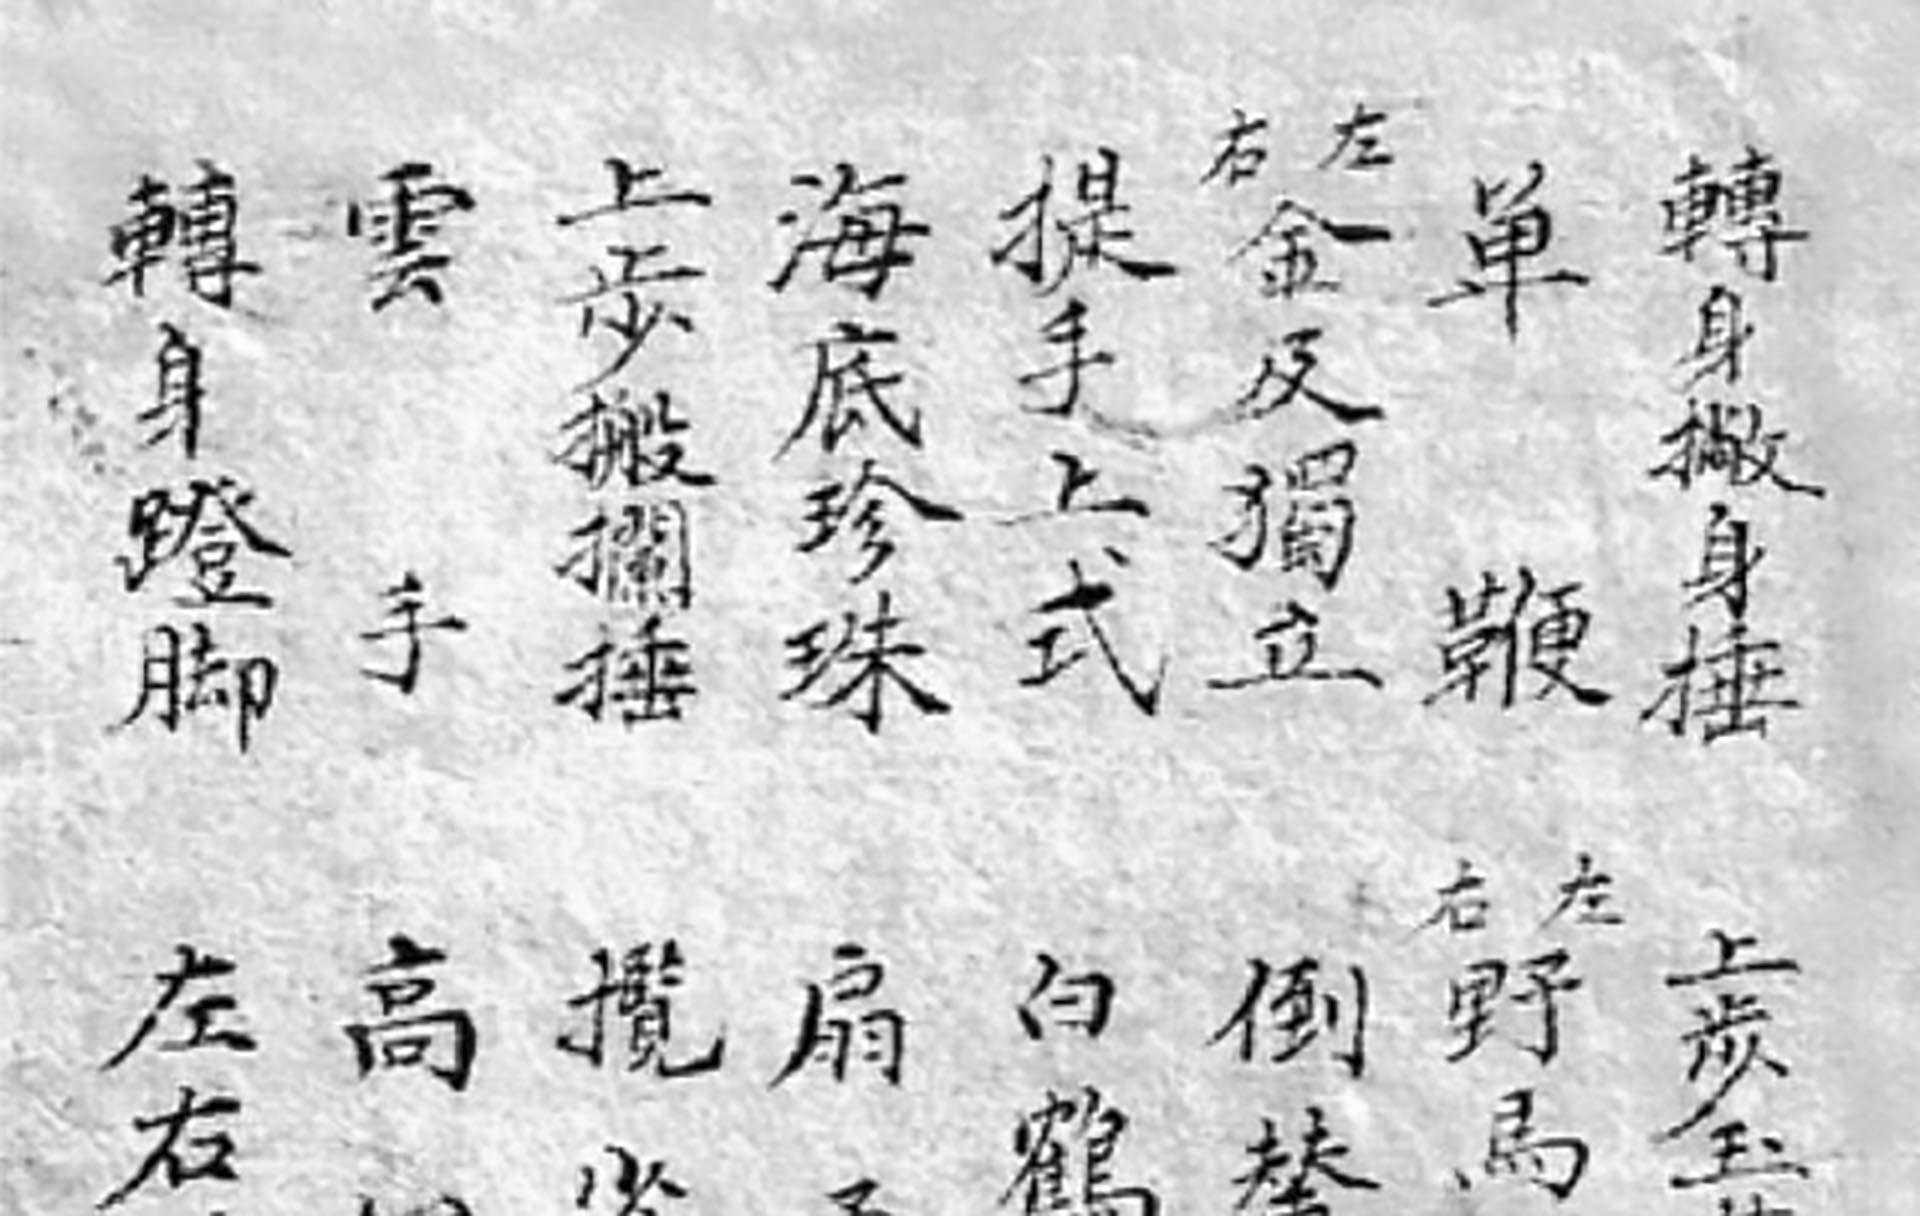 轉身撇身捶
单鞭
左右金反獨立
提手上式
海底珍珠
上步搬攔捶
雲手
轉身蹬脚
上步玉
左右野馬
倒輦
白鶴
扇
攬雀
高
左右